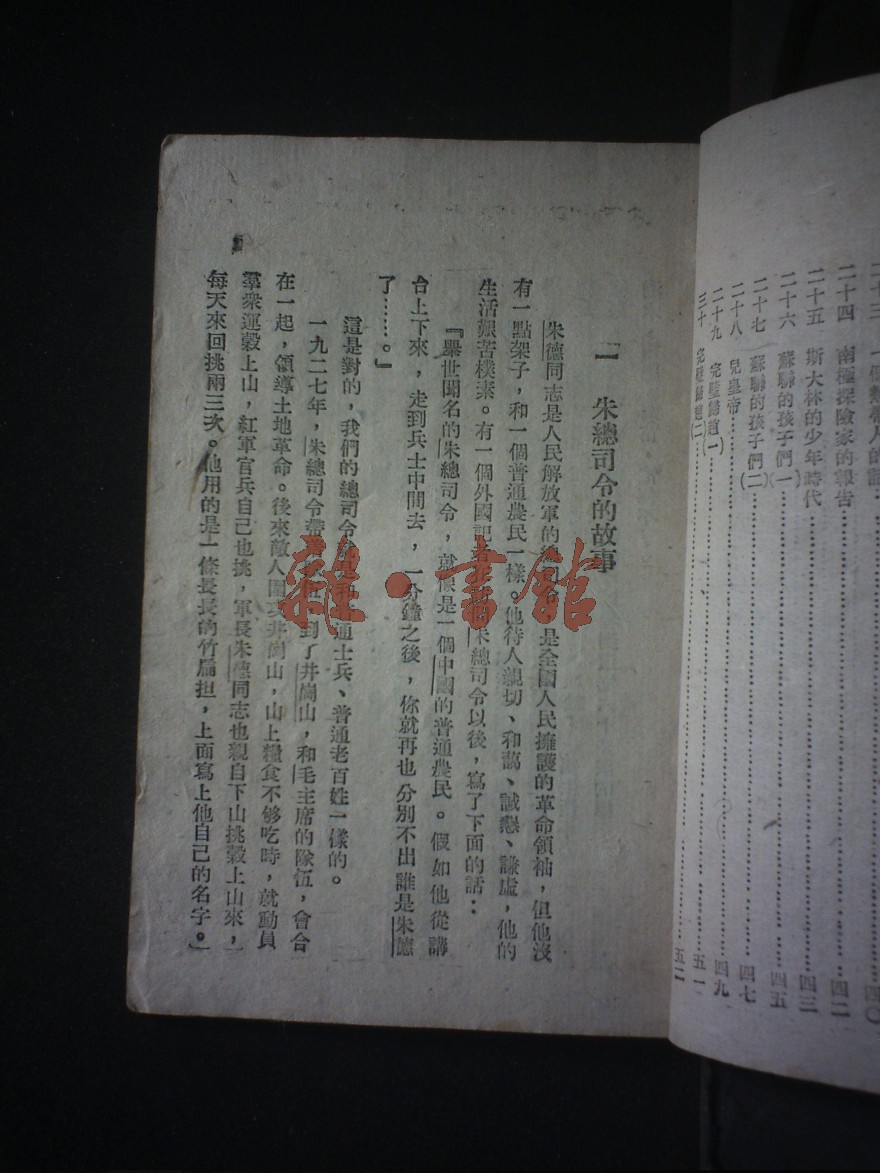 二十四 南極探險家的報告……四二
二十五 斯大林的少年時代……四三
二十六 蘇聯的孩子們(一)……四五
二十七 蘇聯的孩子們(二)……四七
二十八 兒皇帝……四九
二十九 完璧歸趙(一)……五一
三十 完璧歸趙(二)……五二
一 朱總司令的故事
朱德同志是人民解放軍的總司令,是全國人民擁護的革命領袖,但他沒
有一點架子,和一個普通農民一樣。他待人親切、和藹、誠懇、謙虛,他的
生活艱苦樸素。有一個外國記者 朱總司令以後,寫了下面的話:
『舉世聞名的朱總司令,就像是一個中國的普通農民。假如他從講
台上下來,走到兵士中間去,一分鐘之後,你就再也分別不出誰是朱德
了……。』
這是對的,我們的總司令就是和普通士兵、普通老百姓一樣的。
一九二七年,朱總司令帶着 到了井崗山,和毛主席的隊伍,會合
在一起,領導土地革命。後來敵人圍攻井崗山,山上糧食不够吃時,就動員
羣衆運穀上山,紅軍官兵自己也挑,軍長朱德同志也親自下山挑穀上山來,
每天來回挑兩三次。他用的是一條長長的竹扁担,上面寫上他自己的名字。」
雜·書館